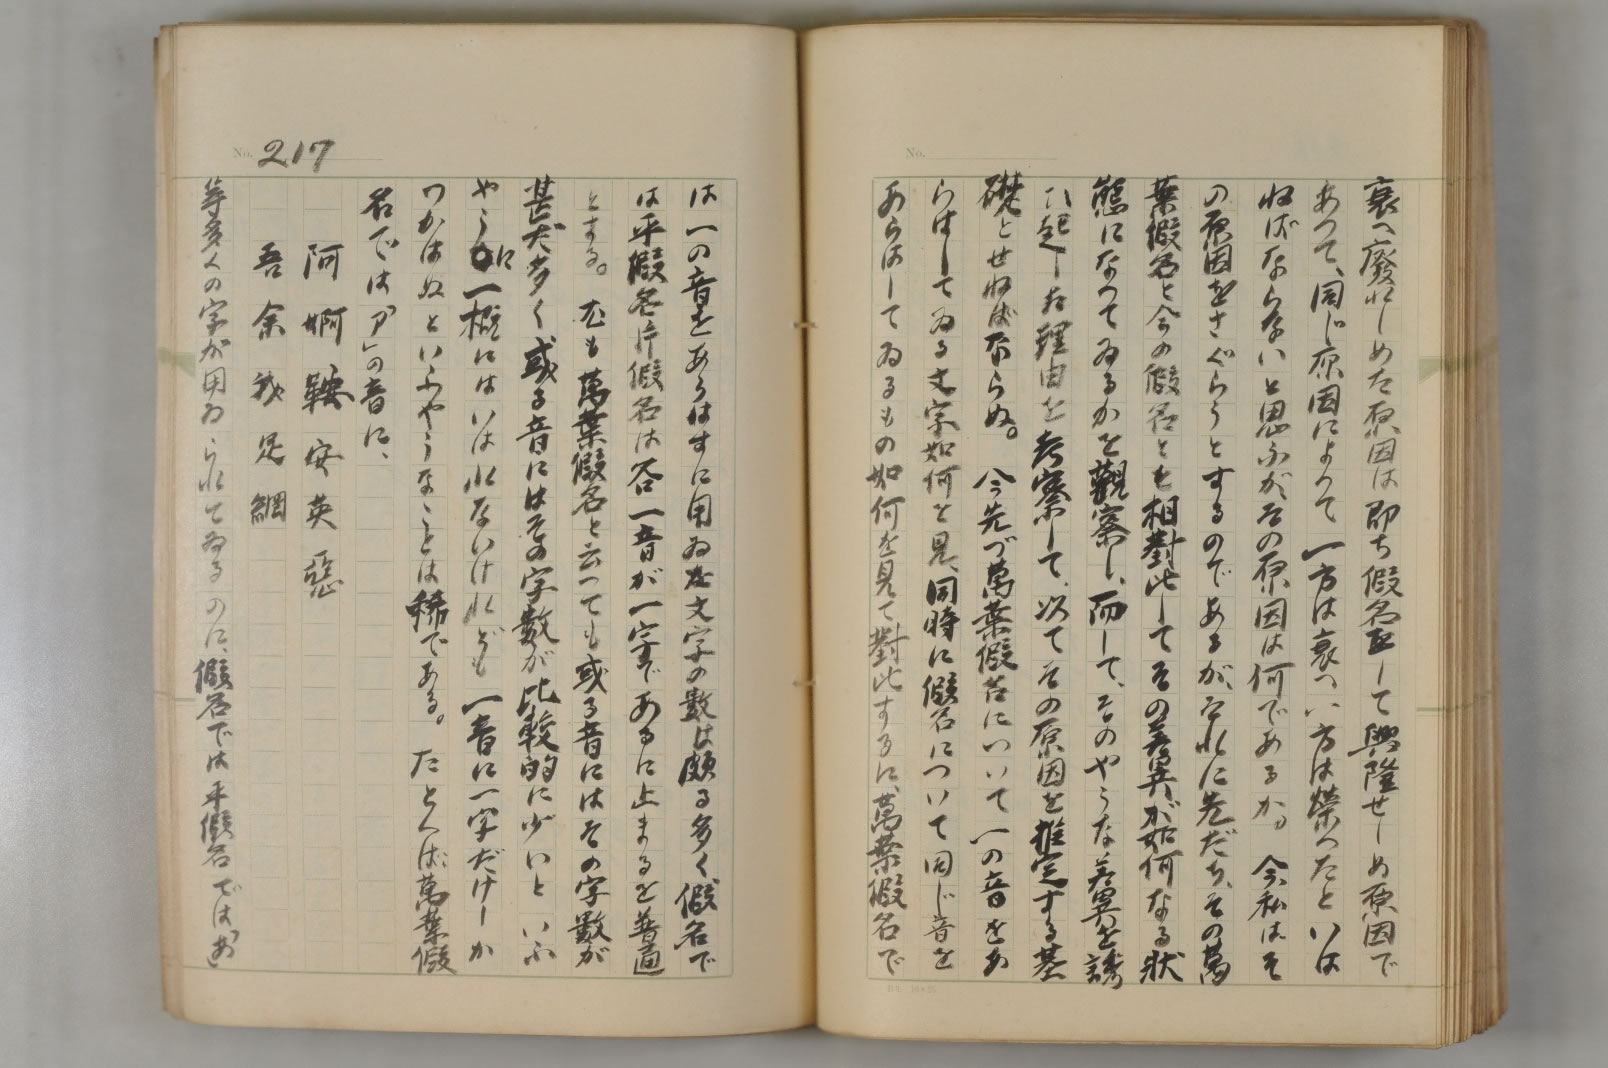 衰へ廢れしめた原因は即ち假名をして興隆せしめ原因で
あつて、同じ原因によつて一方は衰へ一方は榮へたといは
ねばならないと思ふが、その原因は何であるか。今私はそ
の原因をさぐらうとするのであるが、それに先だち、その萬
葉假名と今の假名とを相對比してその差異が如何なる狀
態になつてゐるかを觀察し、而して、そのやうな差異を誘
ひ起した理由を考察して、以てその原因を推定する基
礎とせねばならぬ。今先づ萬葉假名について一の音をあ
らはしてゐる文字如何を見、同時に假名について同じ音を
あらはしてゐるもの如何を見て對比するに、萬葉假名で
No.
No. 217
は一の音をあらはすに用ゐる文字の數は頗る多く假名で
は平假名片假名は各一音が一字であるに止まるを普通
とする。尤も萬葉假名と云つても或る音にはその字數が
甚だ多く或る音にはその字數が比較的に少いといふ
やうに一概にはいはれないけれども一音に一字だけしか
つかはぬといふやうなことは稀である。たとへば萬葉假
名では「ア」の音に、
阿 婀 鞍 安 英 惡
吾 余 我 足 網
等多くの字が用ゐられてゐるのに、假名では平假名では「あ」